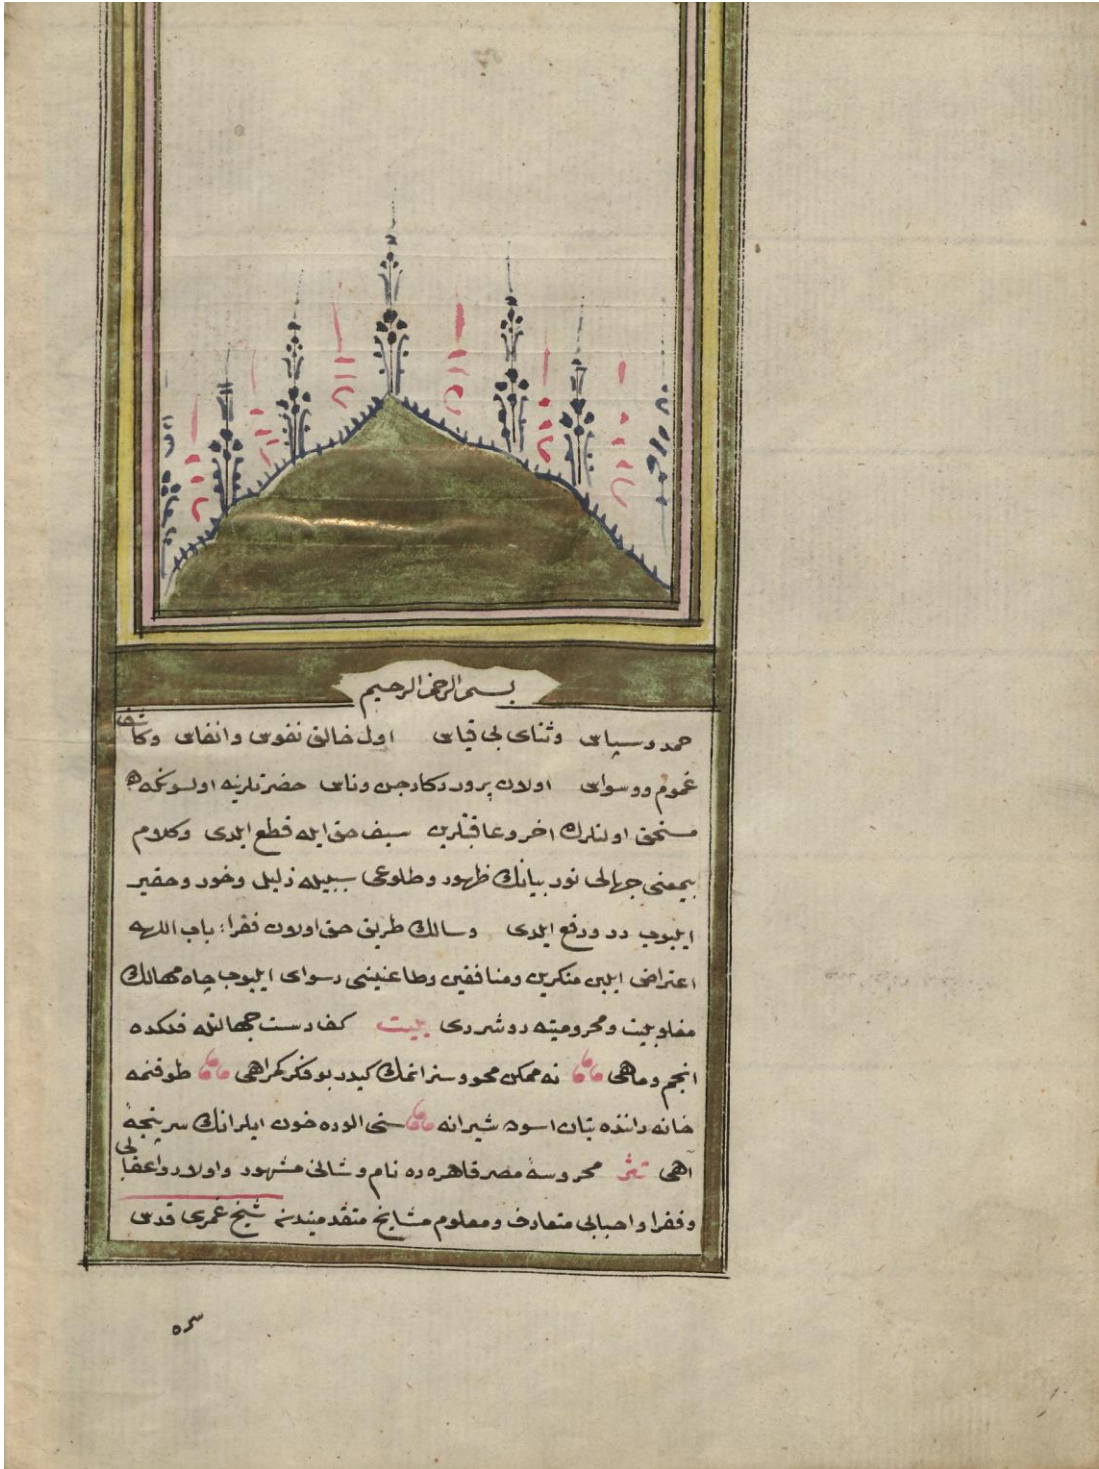 بسم الله الرحمن الرحيم
حمد و سپاس وثنای بی قیاس اول خالق نفوس وانفاس وكاشف
غموم ووسواس اولان پروردكار جن وناس حضرتلرينه اولسونكه
مستحق اولنلرك اخر وعاقبتلرين سيف حق ايله قطع ايلدی وكلام
بيمعنی جهالی نور بيانك ظهور وطلوعی سببيله ذليل وخور وحقير
ايليوب رد ودفع ايلدی وسالك طريق حق اولان فقراء باب اللهه
اعتراض ايلين منكرين ومنافقين وطاعنينی رسوای ايليوب چاه مهالك
مغلوبيت ومحروميته دوشردی بيت كف دست جهالتله فلكده
انجم وماهی نه ممكن محو وستر اتمك كيدر بو فكر كمراهی طوقنمه
خانه داننده يتان اسوده شيرانه سنی الوده خون ايلر انك سرپنجهٔ
آهی نثر محروسهٔ مصر قاهره ده نام وشانی مشهور واولاد واعقابی
وفقرا واحبابی متعارف ومعلوم مشايخ متقدميندنه شيخ غمری قدس
سره